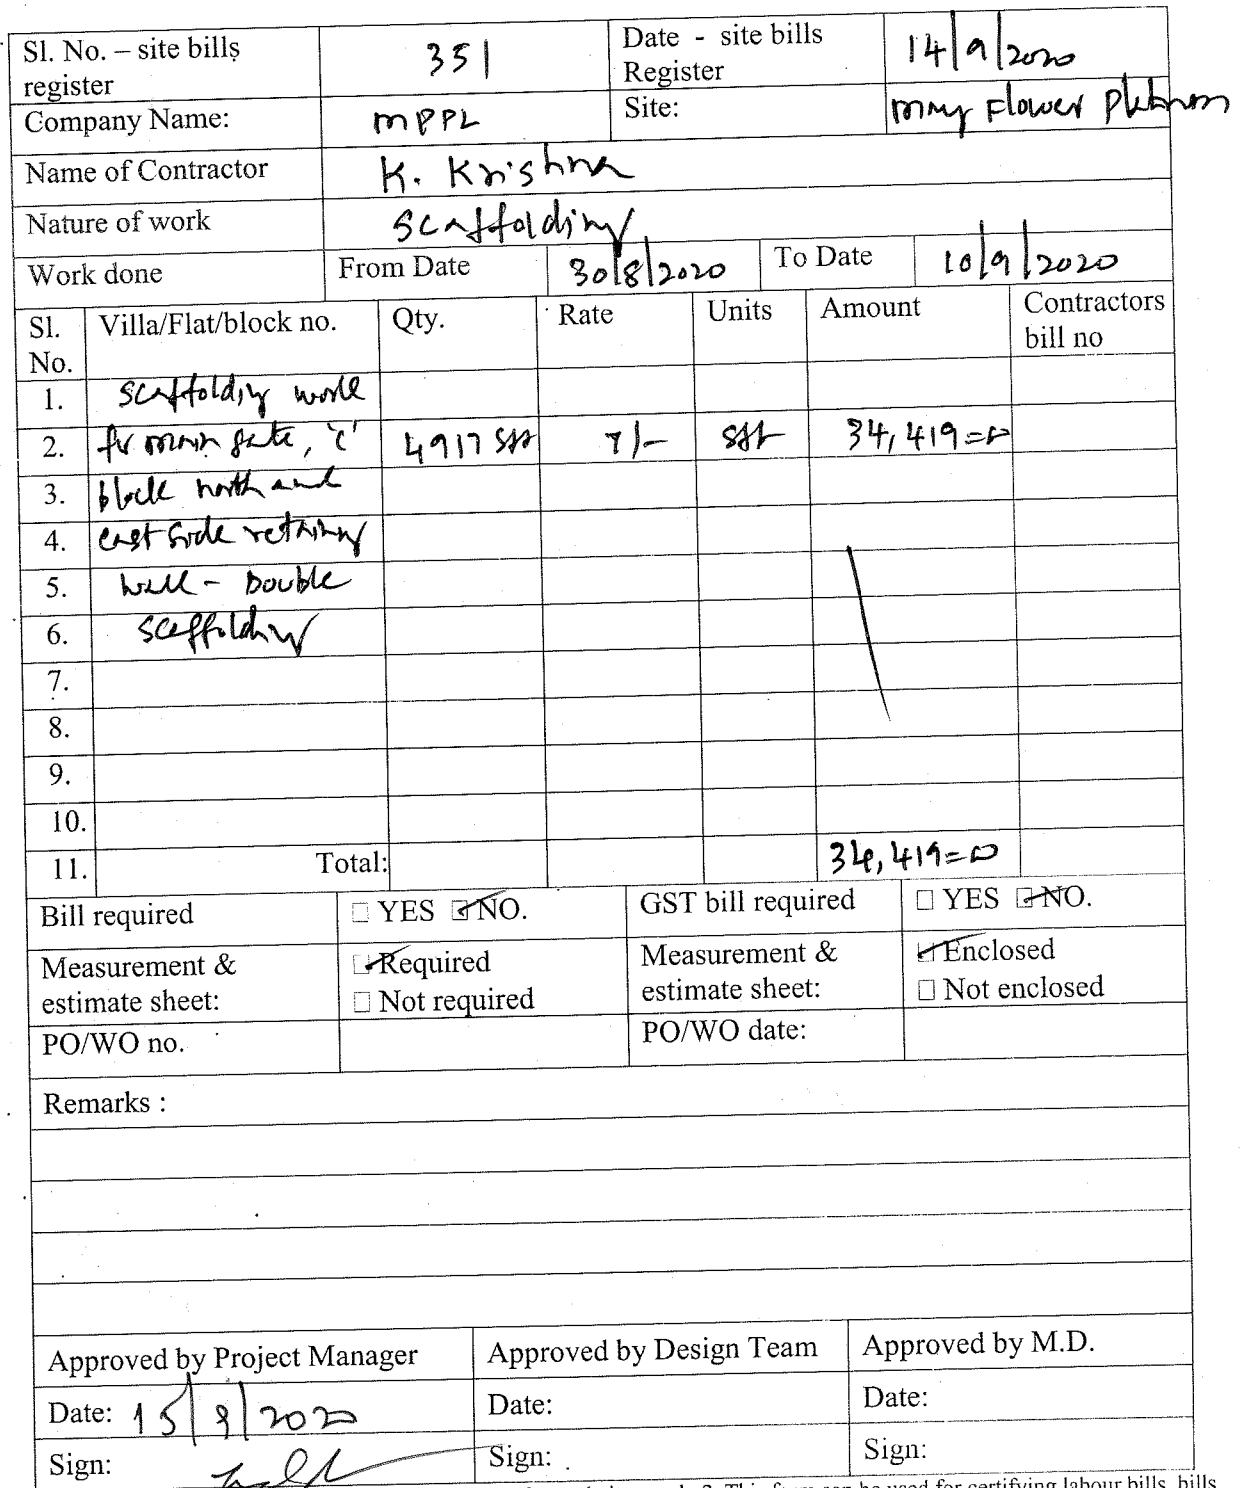 Sl. No. – site bills register 351 Date - site bills Register 14/9/2020
Company Name: MPPL Site: May Flower Platinum
Name of Contractor K. Krishna
Nature of work Scaffolding
Work done From Date 30/8/2020 To Date 10/9/2020
Sl. No. Villa/Flat/block no. Qty. Rate Units Amount Contractors bill no
1. Scaffolding work
2. for main gate, 'c' 4917 sft 7/- sft 34,419=00
3. block north and
4. east side retaining
5. wall - Double
6. scaffolding
7.
8.
9.
10.
11. Total: 34,419=00
Bill required ☐ YES ☑ NO. GST bill required ☐ YES ☑ NO.
Measurement & estimate sheet: ☑ Required ☐ Not required Measurement & estimate sheet: ☑ Enclosed ☐ Not enclosed
PO/WO no. PO/WO date:
Remarks :
Approved by Project Manager Approved by Design Team Approved by M.D.
Date: 15/9/2020 Date: Date:
Sign: Sign: Sign:
This form can be used for certifying labour bills, bills